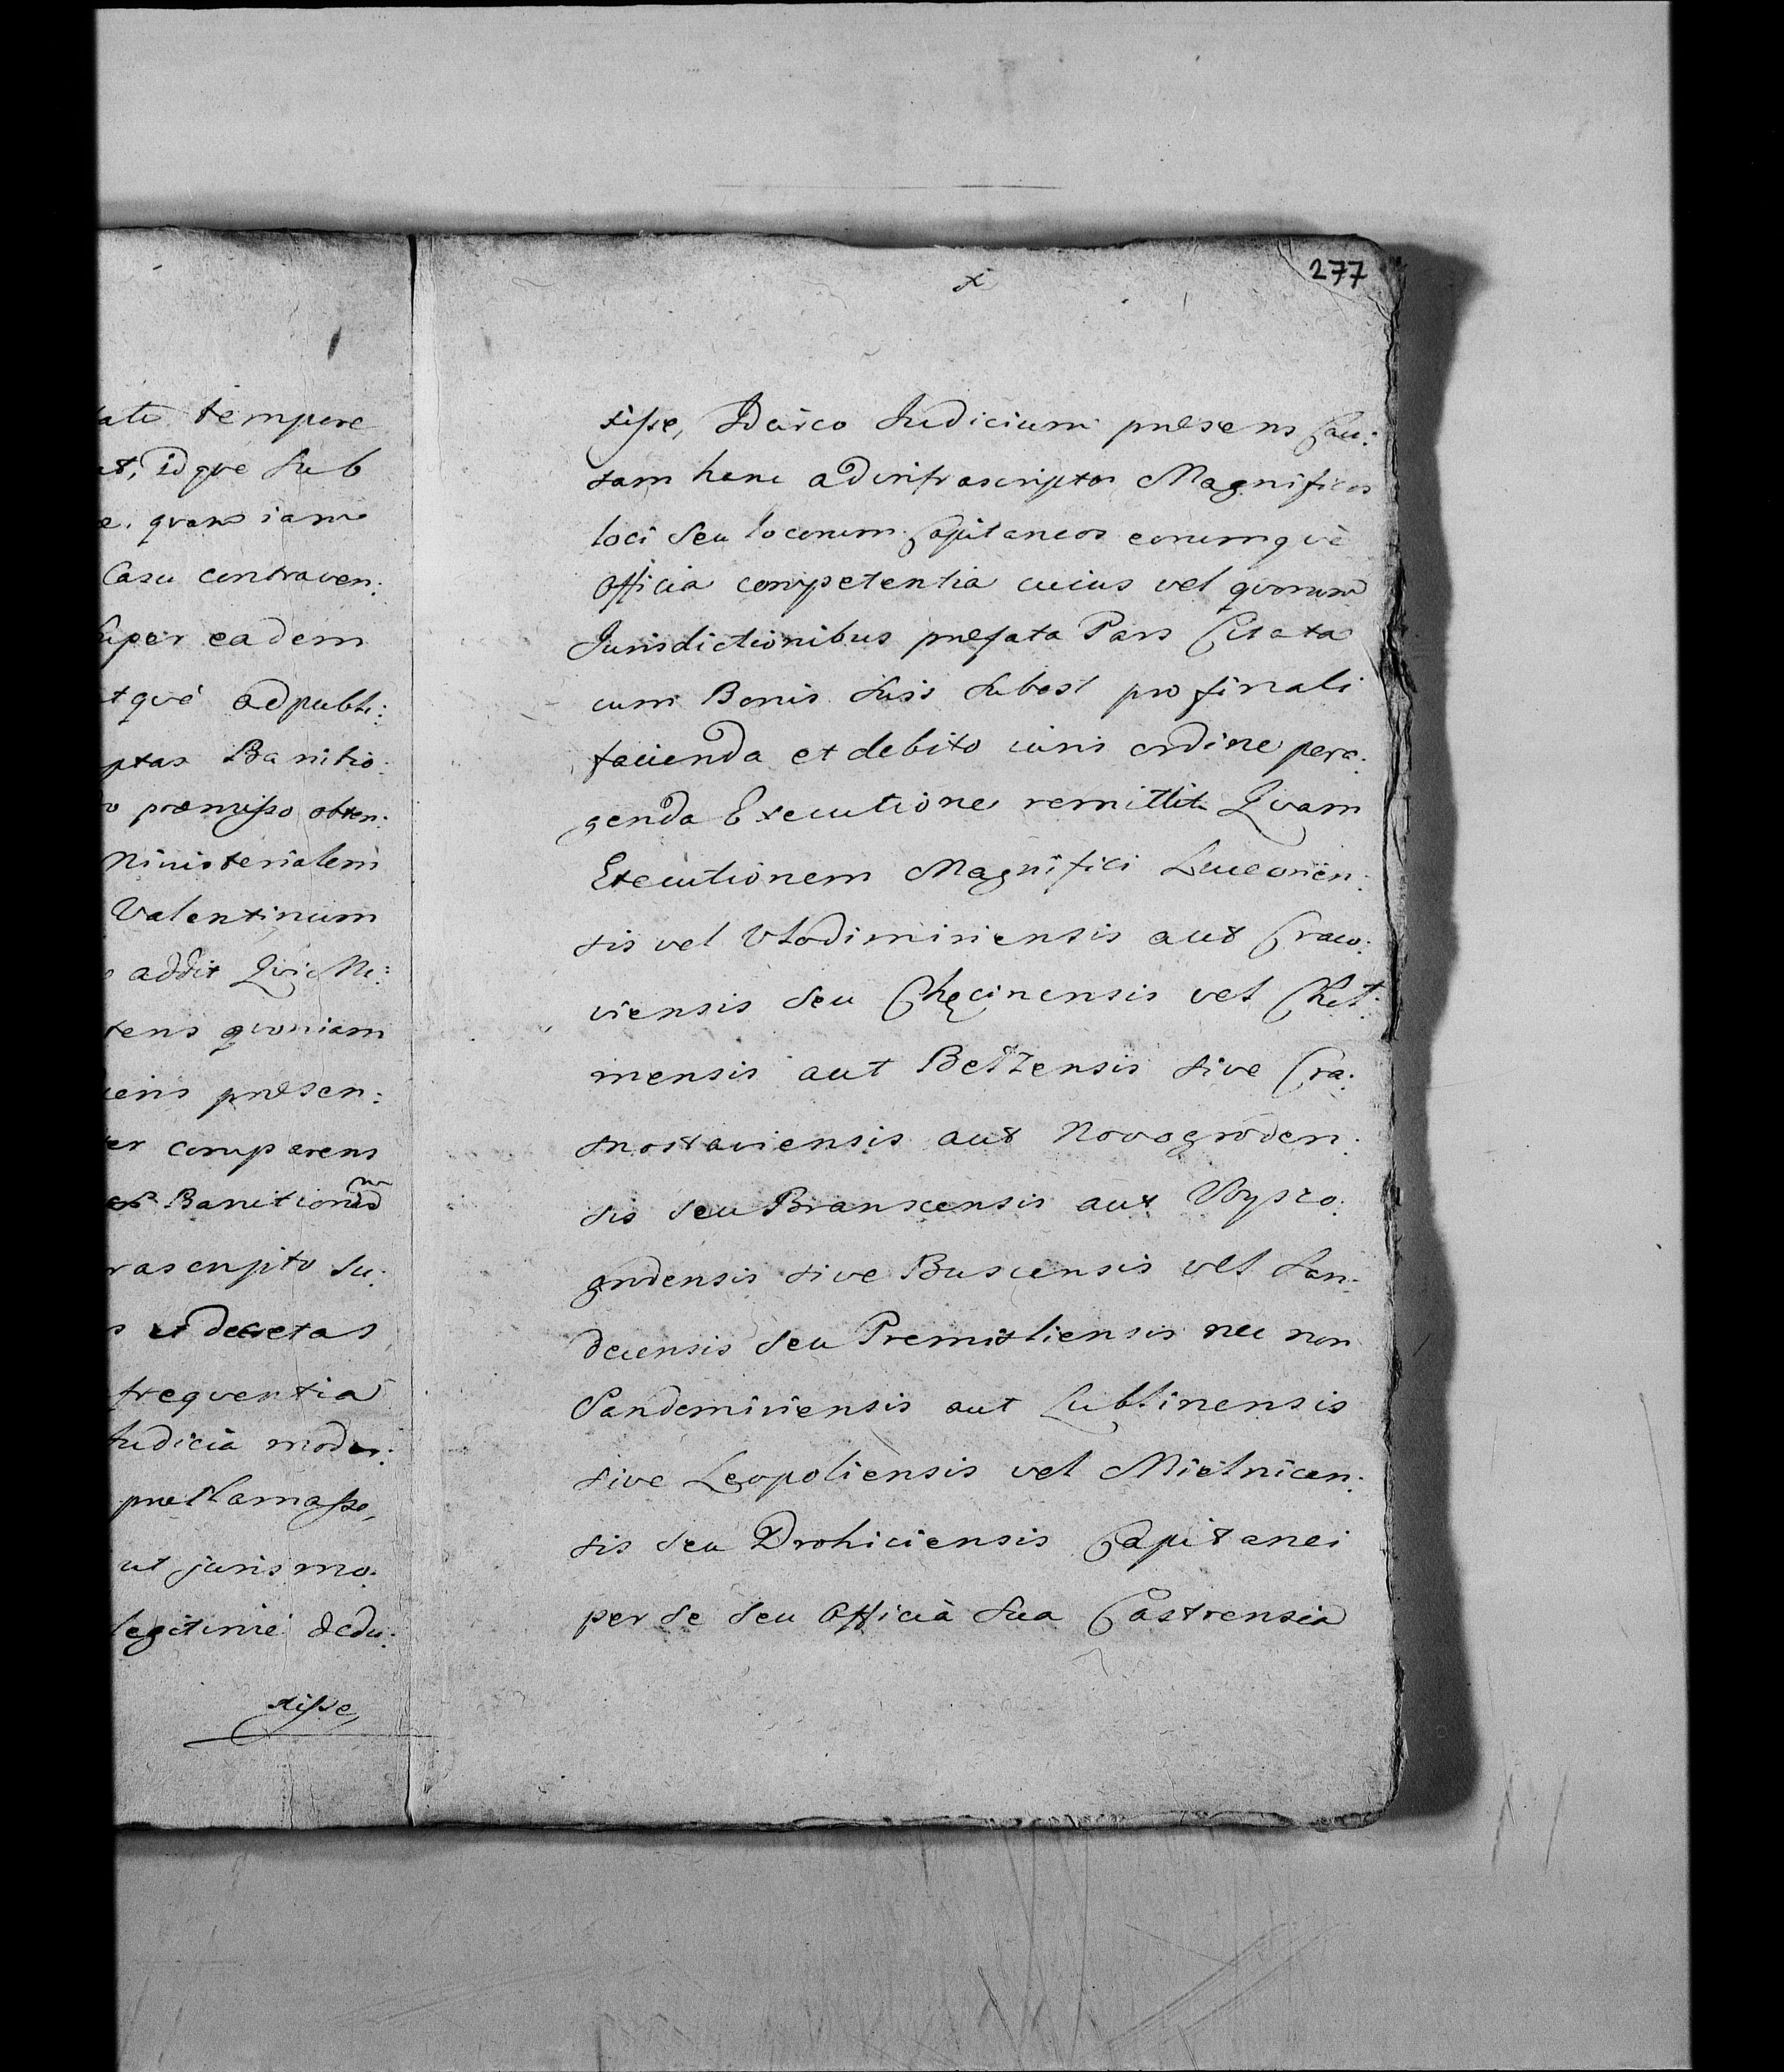 late tempore
at, idque Sub
e. quam iam
Casu contraven:
super eadem
tquè ad publi:
ptas Banitio:
o præmisso obten:
Ministerialem
Valentinum
addit Qui Mi:
tens quoniam
iens præsen:
ter comparens
et Banitionem
rascripto Su:
s et decretas
frequentia
Iudicia moder:
proclamasse,
ut juris mo:
legitimè dedu:
xisse,
277
xisse, Idcirco Iudicium præsens Cau:
sam hanc ad infrascriptos Magnificos
loci seu locorum Capitaneos eorumquè
Officia competentia cuius vel quorum
Jurisdictionibus præfata Pars Citata
cum Bonis Suis Subest pro finali
facienda et debito iuris ordine pera:
genda Executione remittit Quam
Executionem Magnifici Luceorien:
sis vel Vlodimiriensis aut Craco:
viensis seu Chęcinensis vel Chel:
mensis aut Bełzensis sive Cra:
snostaviensis aut Novogroden:
sis seu Branscensis aut Wyszo:
grodensis sive Buscensis vel San:
decensis seu Premisliensis nec non
Sandomiriensis aut Lublinensis
sive Leopoliensis vel Mielnicen:
sis seu Drohiciensis Capitanei
per se seu Officia Sua Castrensia